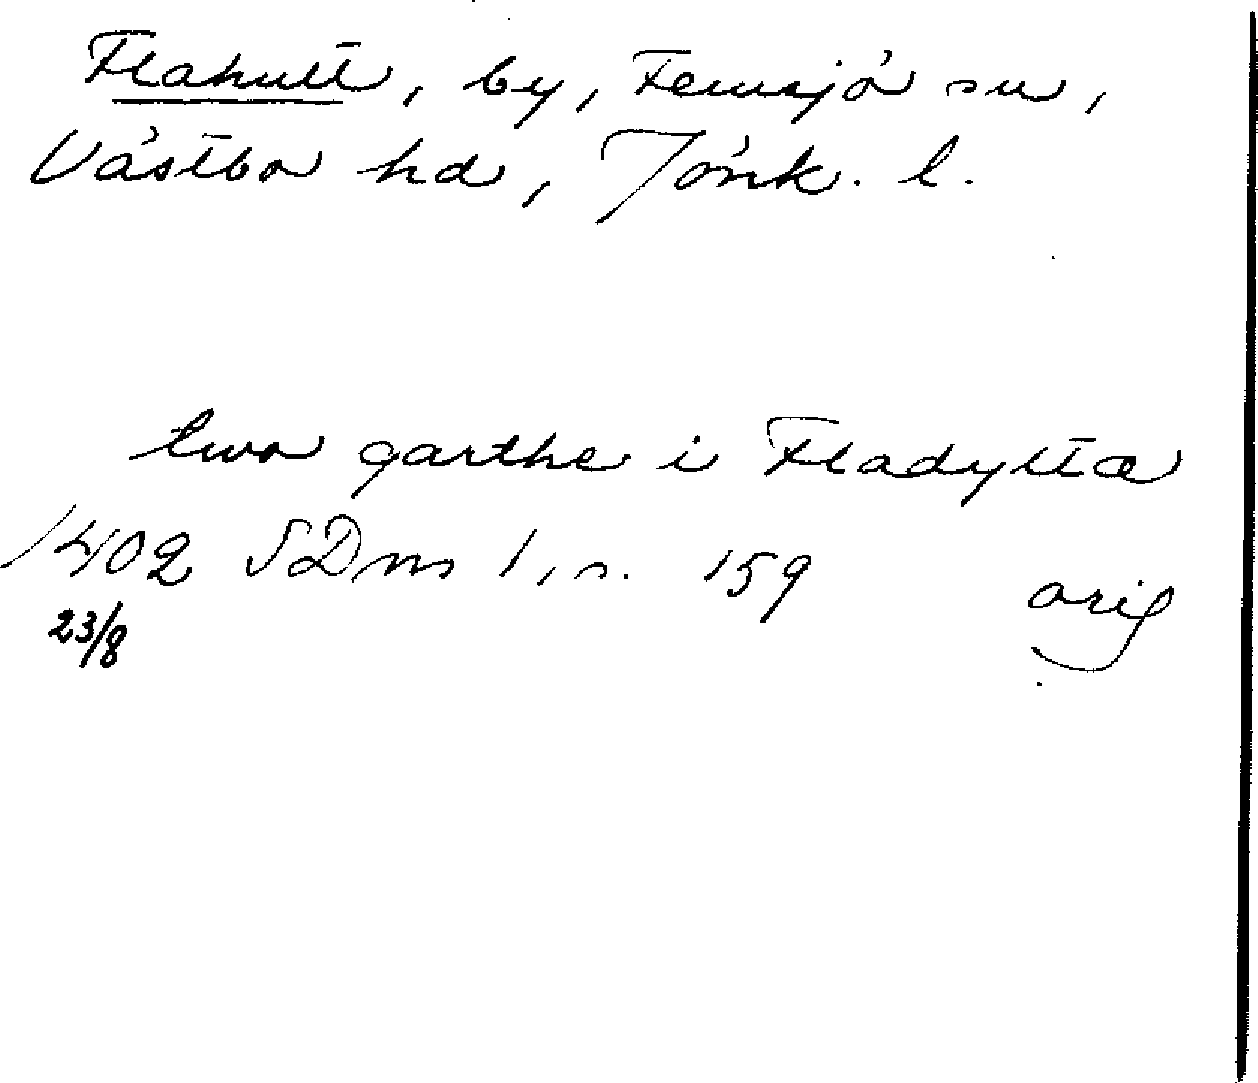 Flahult, by, Femsjö sn,
Västbo hd, Jönk. l.
two garthe i Fladyltæ
1402 SDns 1, s. 159 orig
23/8